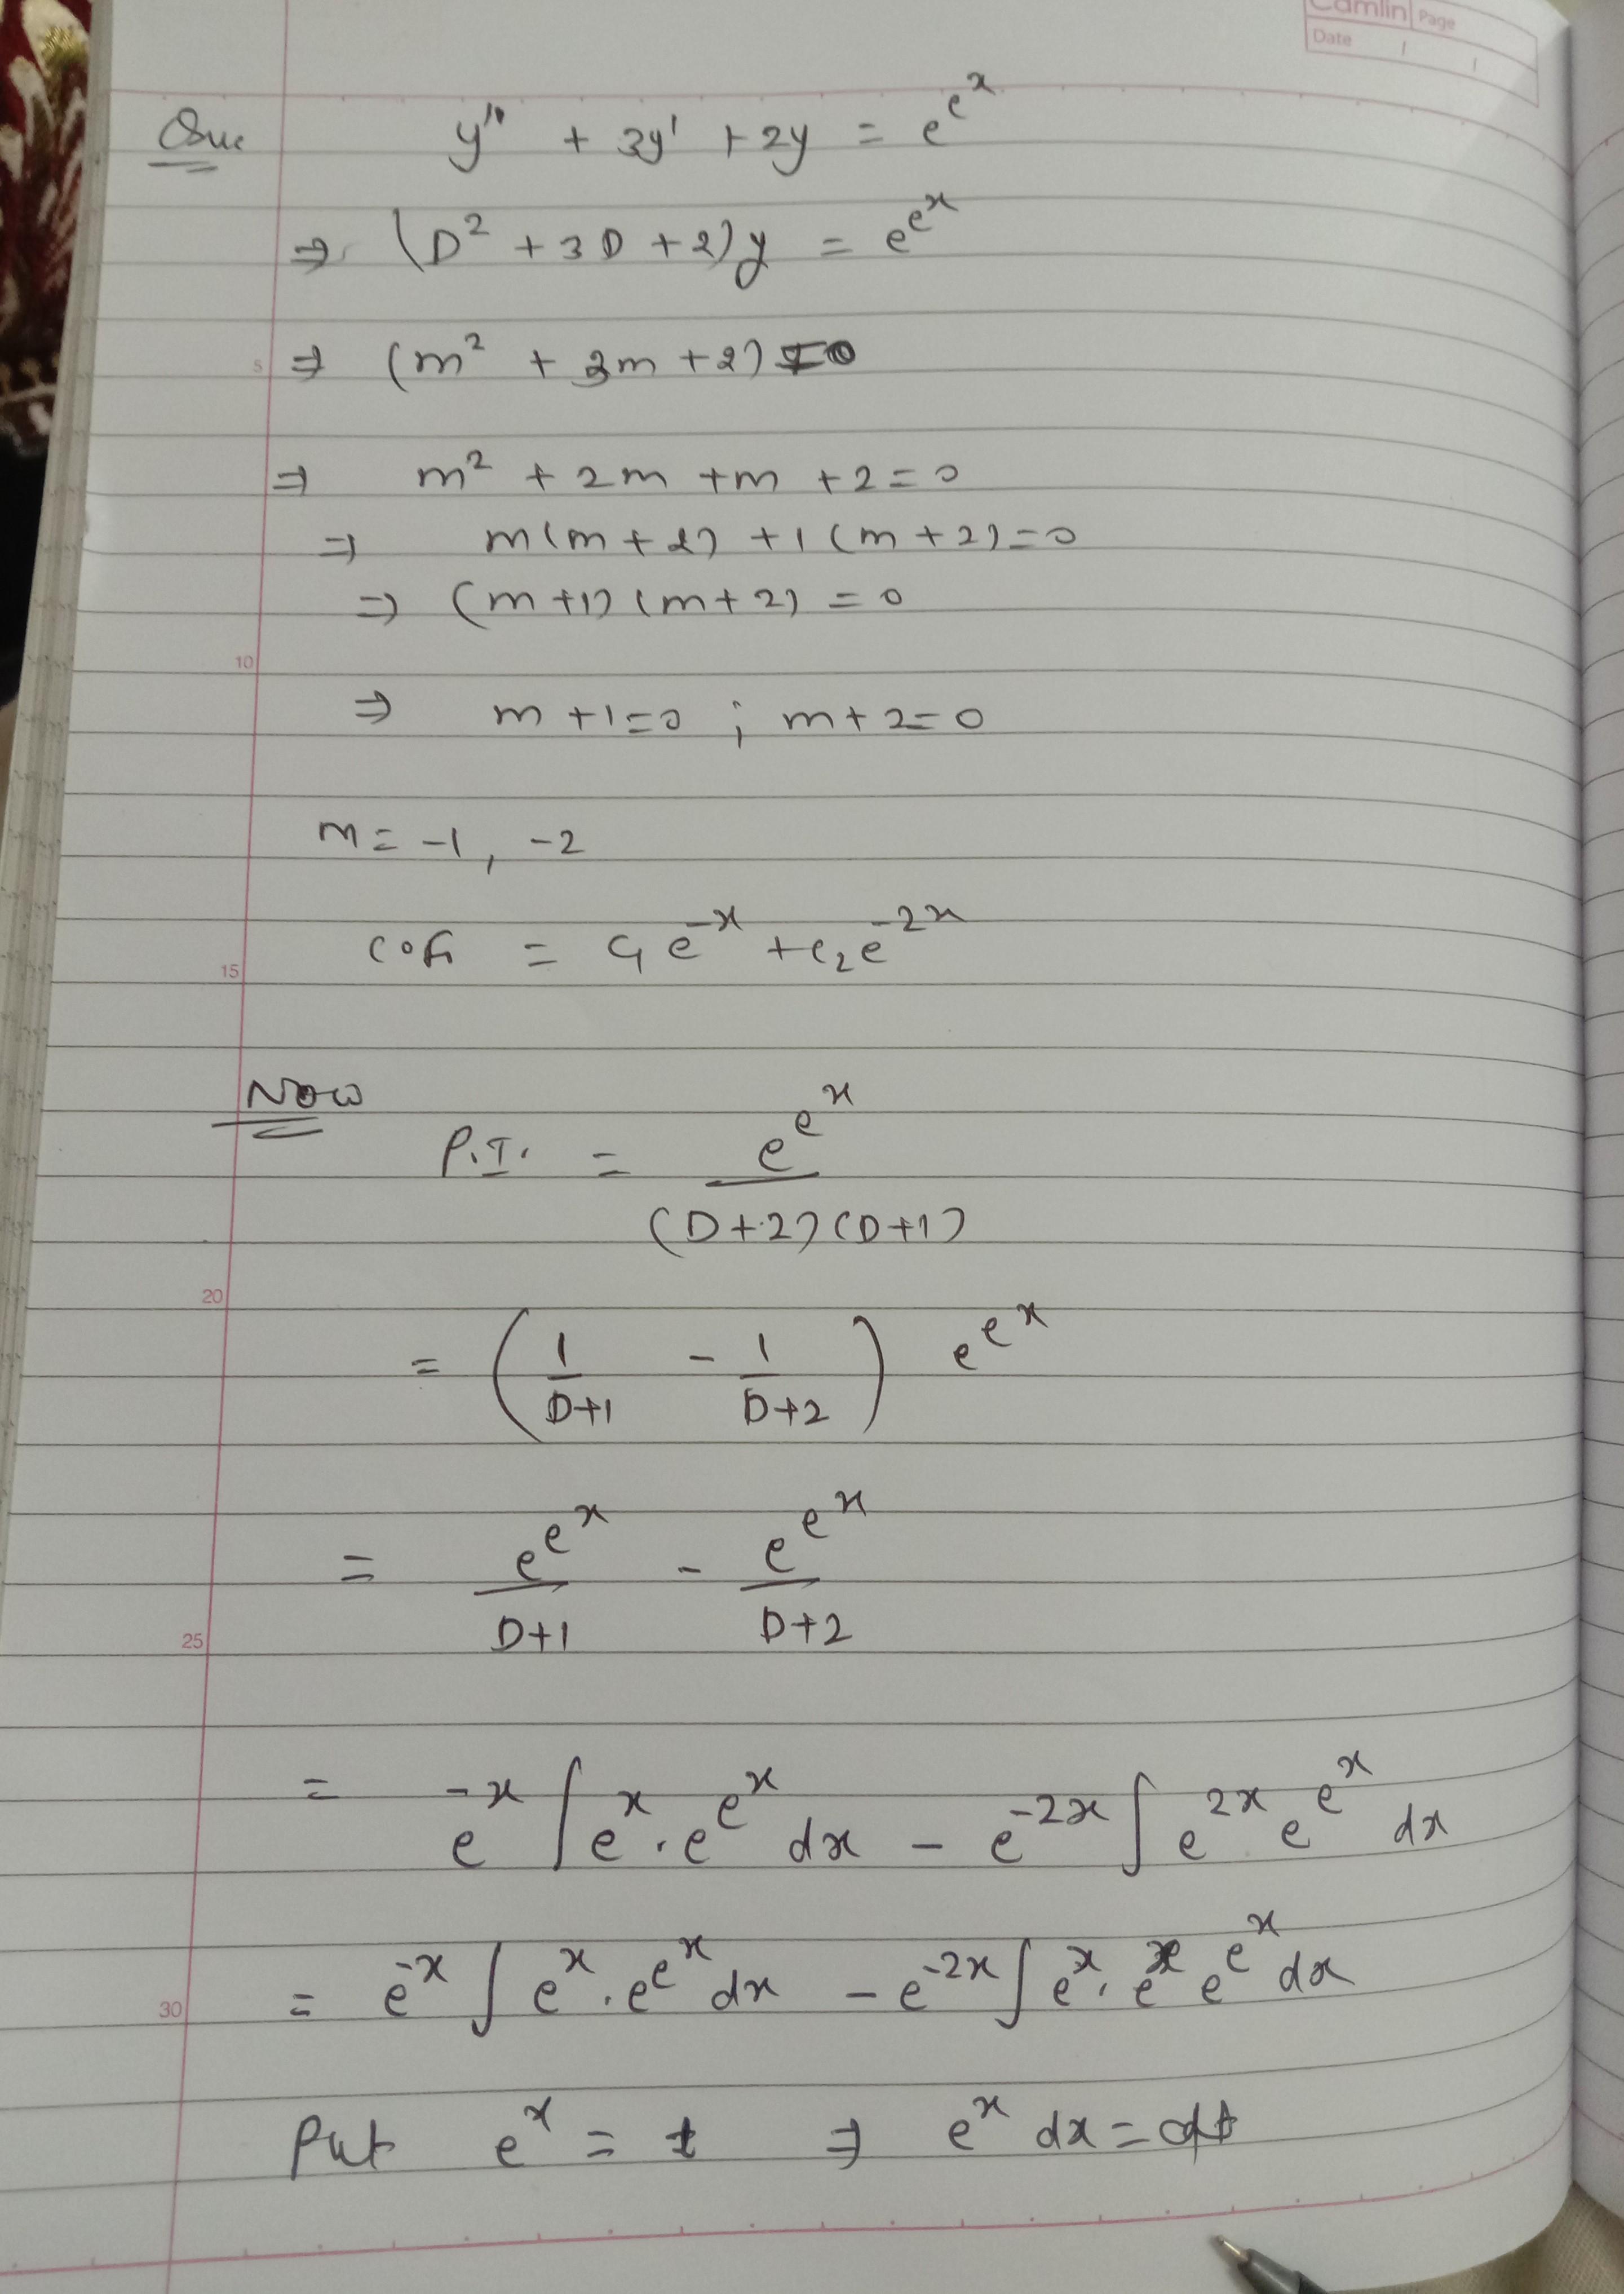 Camlin Page
Date / /
Que y'' + 3y' + 2y = e^{e^x}
⇒ (D² + 3D + 2)y = e^{e^x}
5 ⇒ (m² + 3m + 2) = 0
⇒ m² + 2m + m + 2 = 0
⇒ m(m + 2) + 1(m + 2) = 0
⇒ (m + 1)(m + 2) = 0
10
⇒ m + 1 = 0 ; m + 2 = 0
m = -1, -2
= c₁e^{-x} + c₂e^{-2x}
15
Now
P.I. = e^{e^x} / (D+2)(D+1)
20
= (1/(D+1) - 1/(D+2)) e^{e^x}
= e^{e^x}/(D+1) - e^{e^x}/(D+2)
25
= e^{-x} ∫ e^x . e^{e^x} dx - e^{-2x} ∫ e^{2x} e^{e^x} dx
30 = e^{-x} ∫ e^x . e^{e^x} dx - e^{-2x} ∫ e^x . e^x e^{e^x} dx
Put e^x = t ⇒ e^x dx = dt